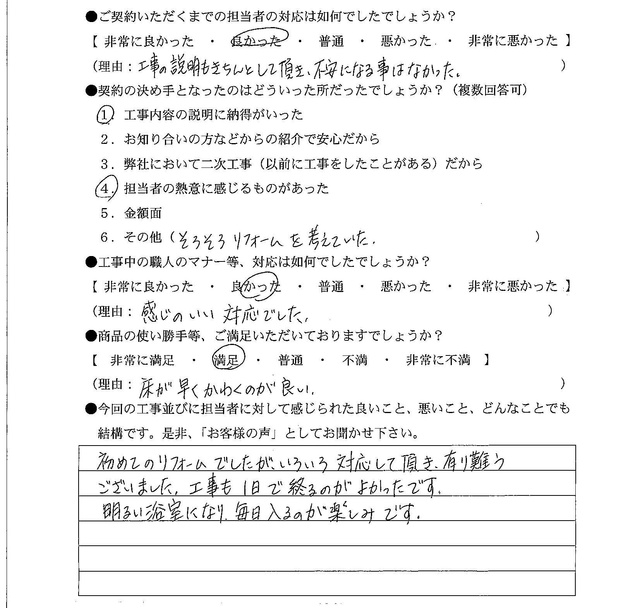 ●ご契約いただくまでの担当者の対応は如何でしたでしょうか？
【 非常に良かった ・ 良かった ・ 普通 ・ 悪かった ・ 非常に悪かった 】
（理由：工事の説明もきちんとして頂き、不安になる事はなかった。 ）
●契約の決め手となったのはどういった所だったでしょうか？（複数回答可）
１．工事内容の説明に納得がいった
２．お知り合いの方などからの紹介で安心だから
３．弊社において二次工事（以前に工事をしたことがある）だから
４．担当者の熱意に感じるものがあった
５．金額面
６．その他（そろそろリフォームを考えていた。 ）
●工事中の職人のマナー等、対応は如何でしたでしょうか？
【 非常に良かった ・ 良かった ・ 普通 ・ 悪かった ・ 非常に悪かった 】
（理由：感じのいい対応でした。 ）
●商品の使い勝手等、ご満足いただいておりますでしょうか？
【 非常に満足 ・ 満足 ・ 普通 ・ 不満 ・ 非常に不満 】
（理由：床が早くかわくのが良い。 ）
●今回の工事並びに担当者に対して感じられた良いこと、悪いこと、どんなことでも
結構です。是非、「お客様の声」としてお聞かせ下さい。
初めてのリフォームでしたが、いろいろ対応して頂き、有り難う
ございました。工事も1日で終るのがよかったです。
明るい浴室になり、毎日入るのが楽しみです。